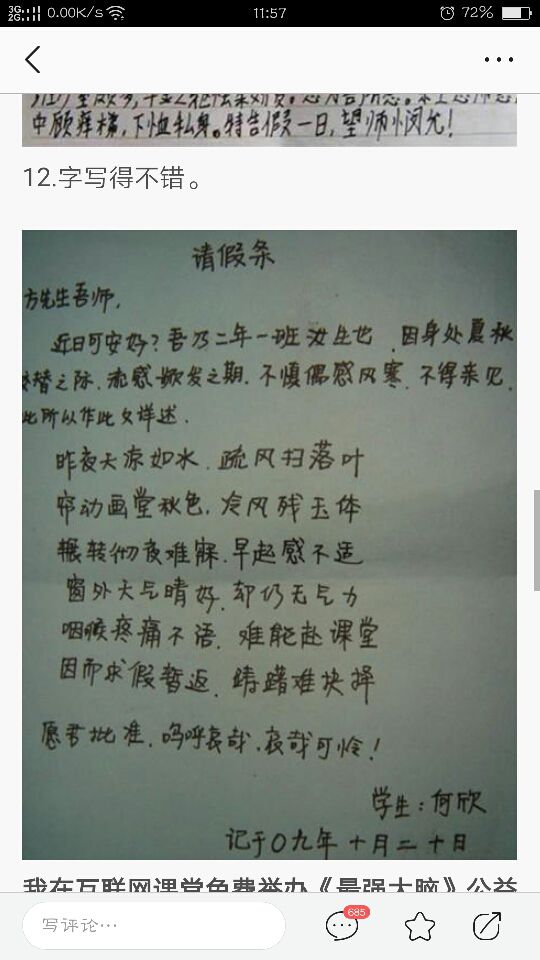 3G
2G
0.00K/s
11:57
72%
中顾痒梯,下恤私身。特告假一日,望师悯允!
12.字写得不错。
请假条
方先生吾师,
近日可安好?吾乃二年一班汝生也,因身处夏秋
替之际,流感欲发之期,不慎偶感风寒,不得亲见,
此所以作此文详述.
昨夜天凉如水,疏风扫落叶
帘动画堂秋色,冷风残玉体
辗转彻夜难寐,早起感不适
窗外天气晴好,却仍无气力
咽喉疼痛不语,难能赴课堂
因而求假暂返,踌躇难抉择
愿君批准,呜呼哀哉,哀哉可怜!
学生:何欣
记于〇九年十月二十日
我在互联网课堂免费举办《最强大脑》公益
写评论…
685